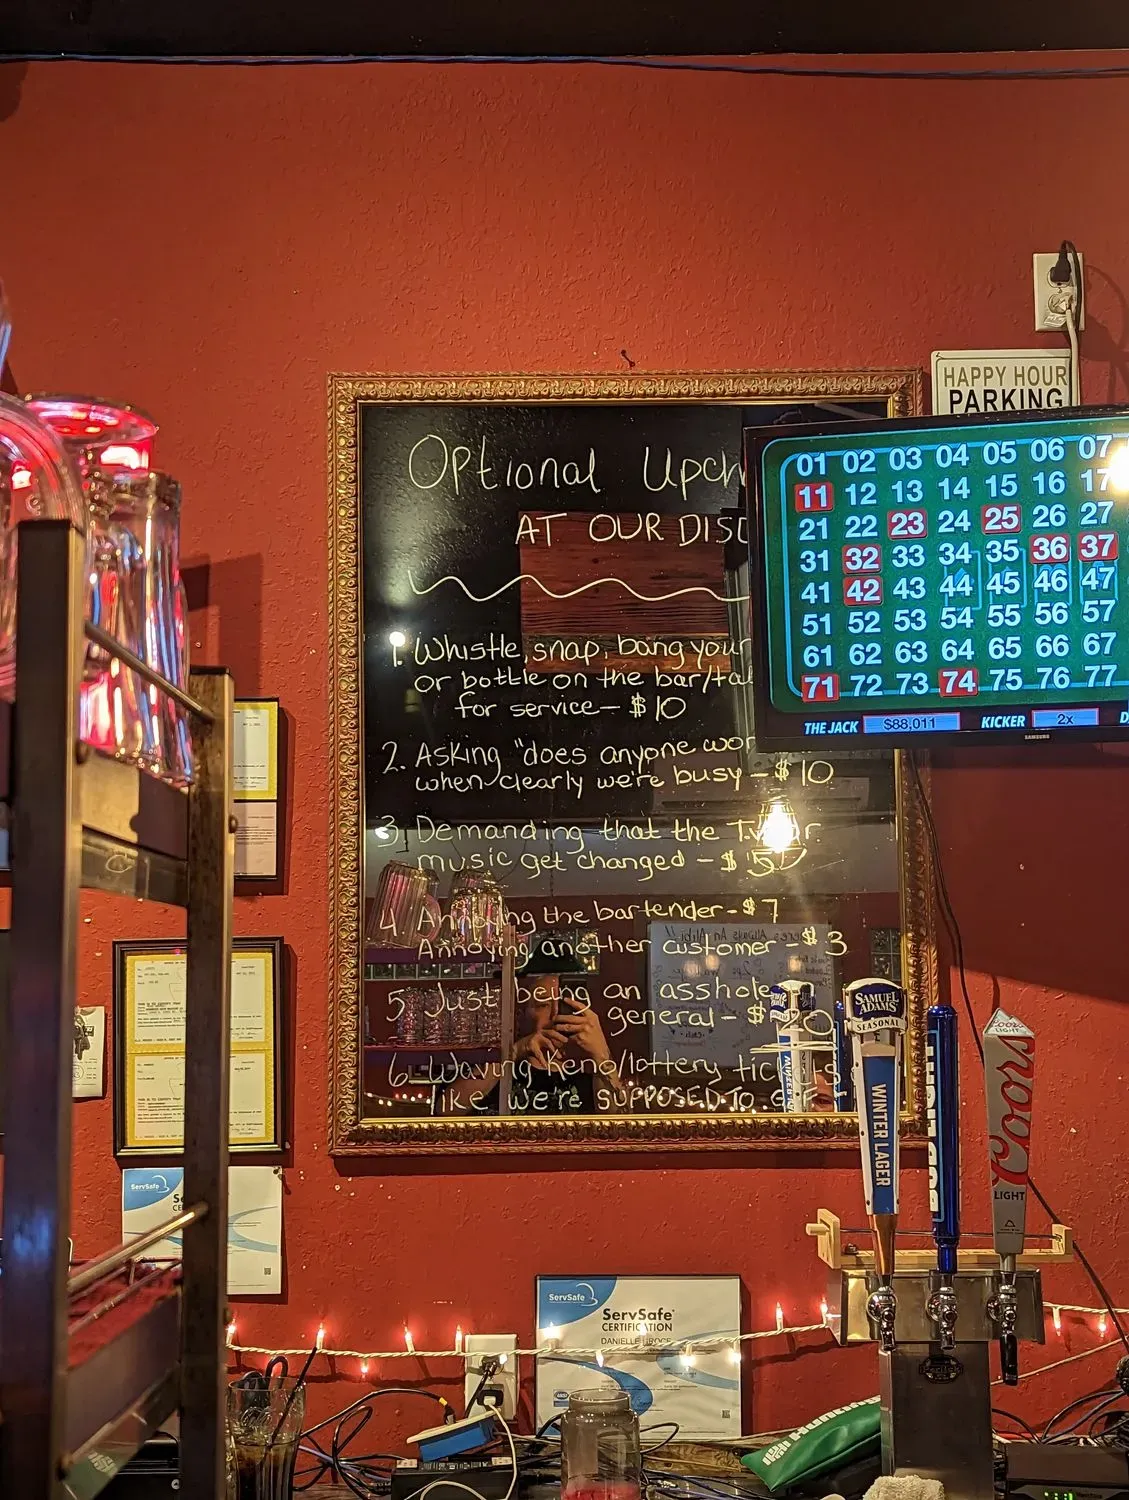 Optional Upch
AT OUR DISC
1. Whistle, snap, bang your
or bottle on the bar/tal
for service - $10
2. Asking "does anyone wor
when clearly we're busy - $10
3. Demanding that the T.V. or
music get changed - $5
4. Annoying the bartender - $7
Annoying another customer - $3
5. Just being an asshole
general - $20
6. Waving Keno/lottery tickets
like we're SUPPOSED TO
HAPPY HOUR
PARKING
01 02 03 04 05 06 07
11 12 13 14 15 16 17
21 22 23 24 25 26 27
31 32 33 34 35 36 37
41 42 43 44 45 46 47
51 52 53 54 55 56 57
61 62 63 64 65 66 67
71 72 73 74 75 76 77
THE JACK $88,011 KICKER 2x D
SAMSUNG
SAMUEL
ADAMS
SEASONAL
WINTER LAGER
Coors
LIGHT
Coors
LIGHT
ServSafe
ServSafe
ServSafe
CERTIFICATION
DANIELLE